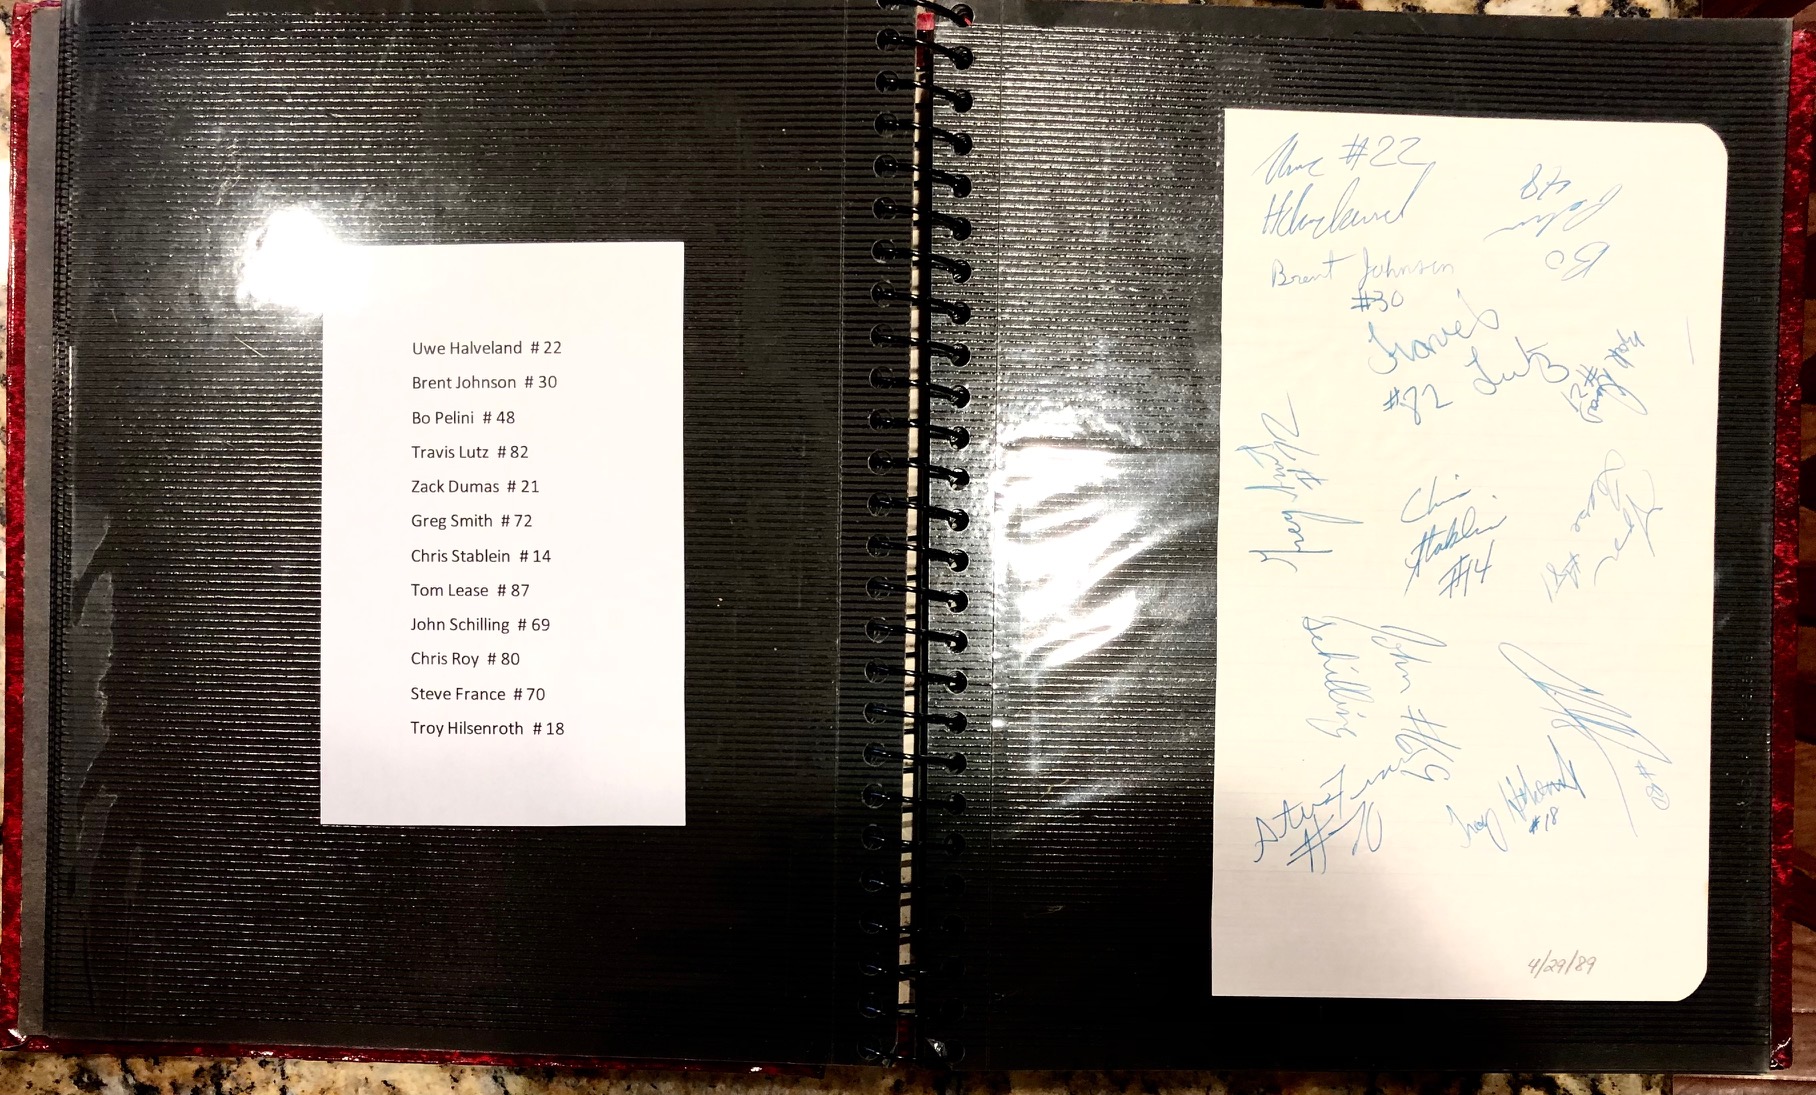 Uwe Halveland # 22
Brent Johnson # 30
Bo Pelini # 48
Travis Lutz # 82
Zack Dumas # 21
Greg Smith # 72
Chris Stablein # 14
Tom Lease # 87
John Schilling # 69
Chris Roy # 80
Steve France # 70
Troy Hilsenroth # 18
#22
Bo
48
Brent Johnson
#30
Travis
Lutz
#82
#21
Chris
Stablein
#14
Lease
John #69
Schilling
#80
#18
4/29/89